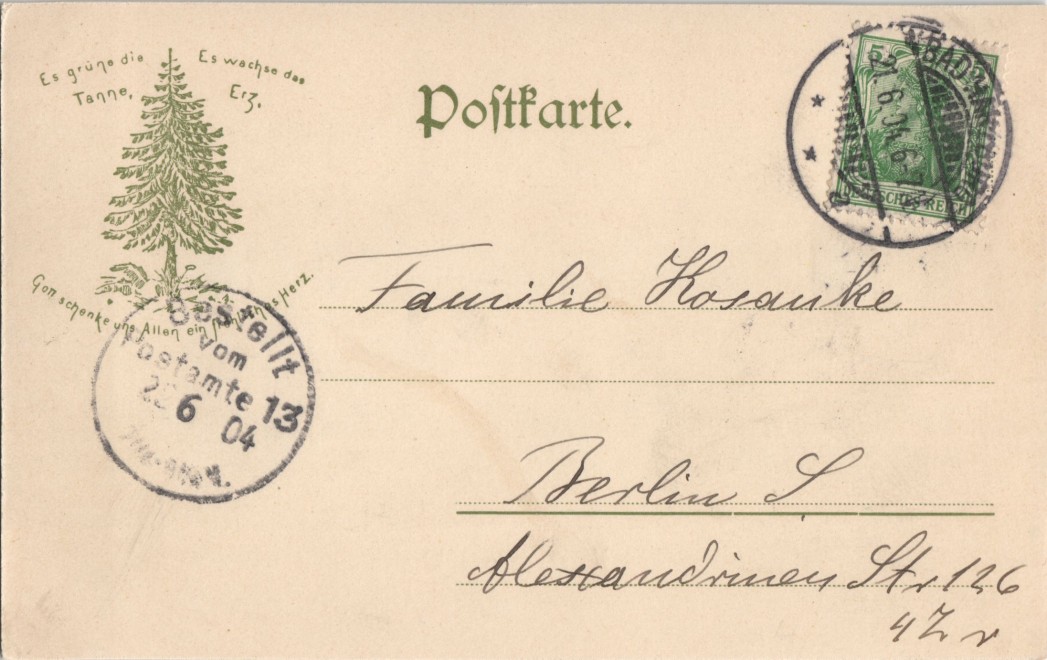 Es grüne die
Tanne,
Es wachse das
Erz.
Gott schenke uns Allen ein fröhlich's Herz.
Postkarte.
5
21.6.04.6-7
DEUTSCHES REICH
BAD
Bestellt
vom
Postamte 13
22 6 04
Familie Kosanke
Berlin S
Alexandrinen Str 126